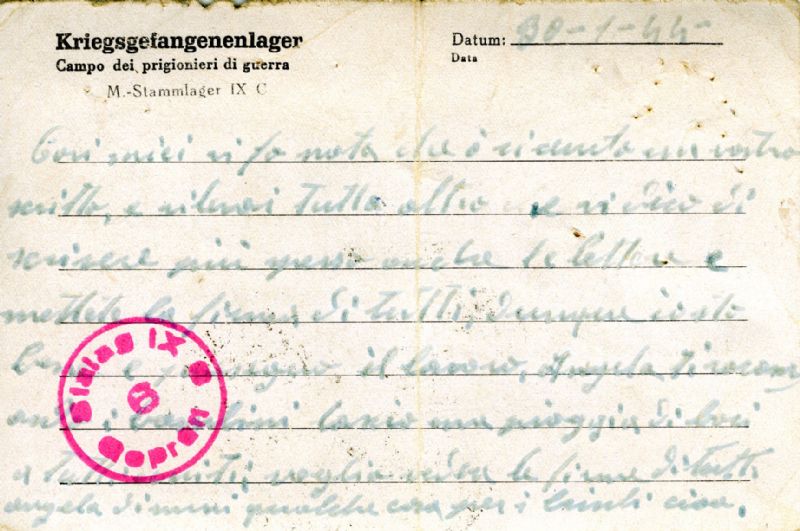 Kriegsgefangenenlager
Campo dei prigionieri di guerra
M.-Stammlager IX C
Datum: 30-1-44-
Data
Cari miei vi fo nota che ò ricevuto un vostro
scritto, e tutto altro che vi dico di
scrivere più spesso anche le lettere e
mettete la firma di tutti, dunque io sto
bene e il lavoro, Angela
i bambini lascio una pioggia di baci
a tutti voglio veder le firme di tutti
angela dimmi qualche cosa per i ciao,
Stalag IX C
6
Geprüft